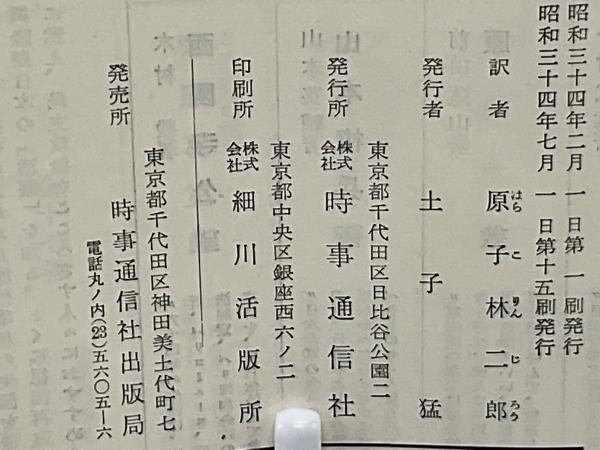 昭和三十四年二月一日第一刷発行
昭和三十四年七月一日第十五刷発行
訳者 原子林二郎
はらこりんじろう
発行者 土子猛
東京都千代田区日比谷公園二
発行所 株式会社 時事通信社
東京都中央区銀座西六ノ二
印刷所 株式会社 細川活版所
東京都千代田区神田美土代町七
発売所 時事通信社出版局
電話丸ノ内(23)五六〇五―六